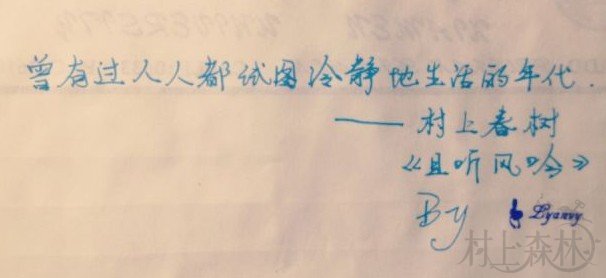 曾有过人人都试图冷静地生活的年代.
—— 村上春树
《且听风吟》
By Lyanvy
村上森林